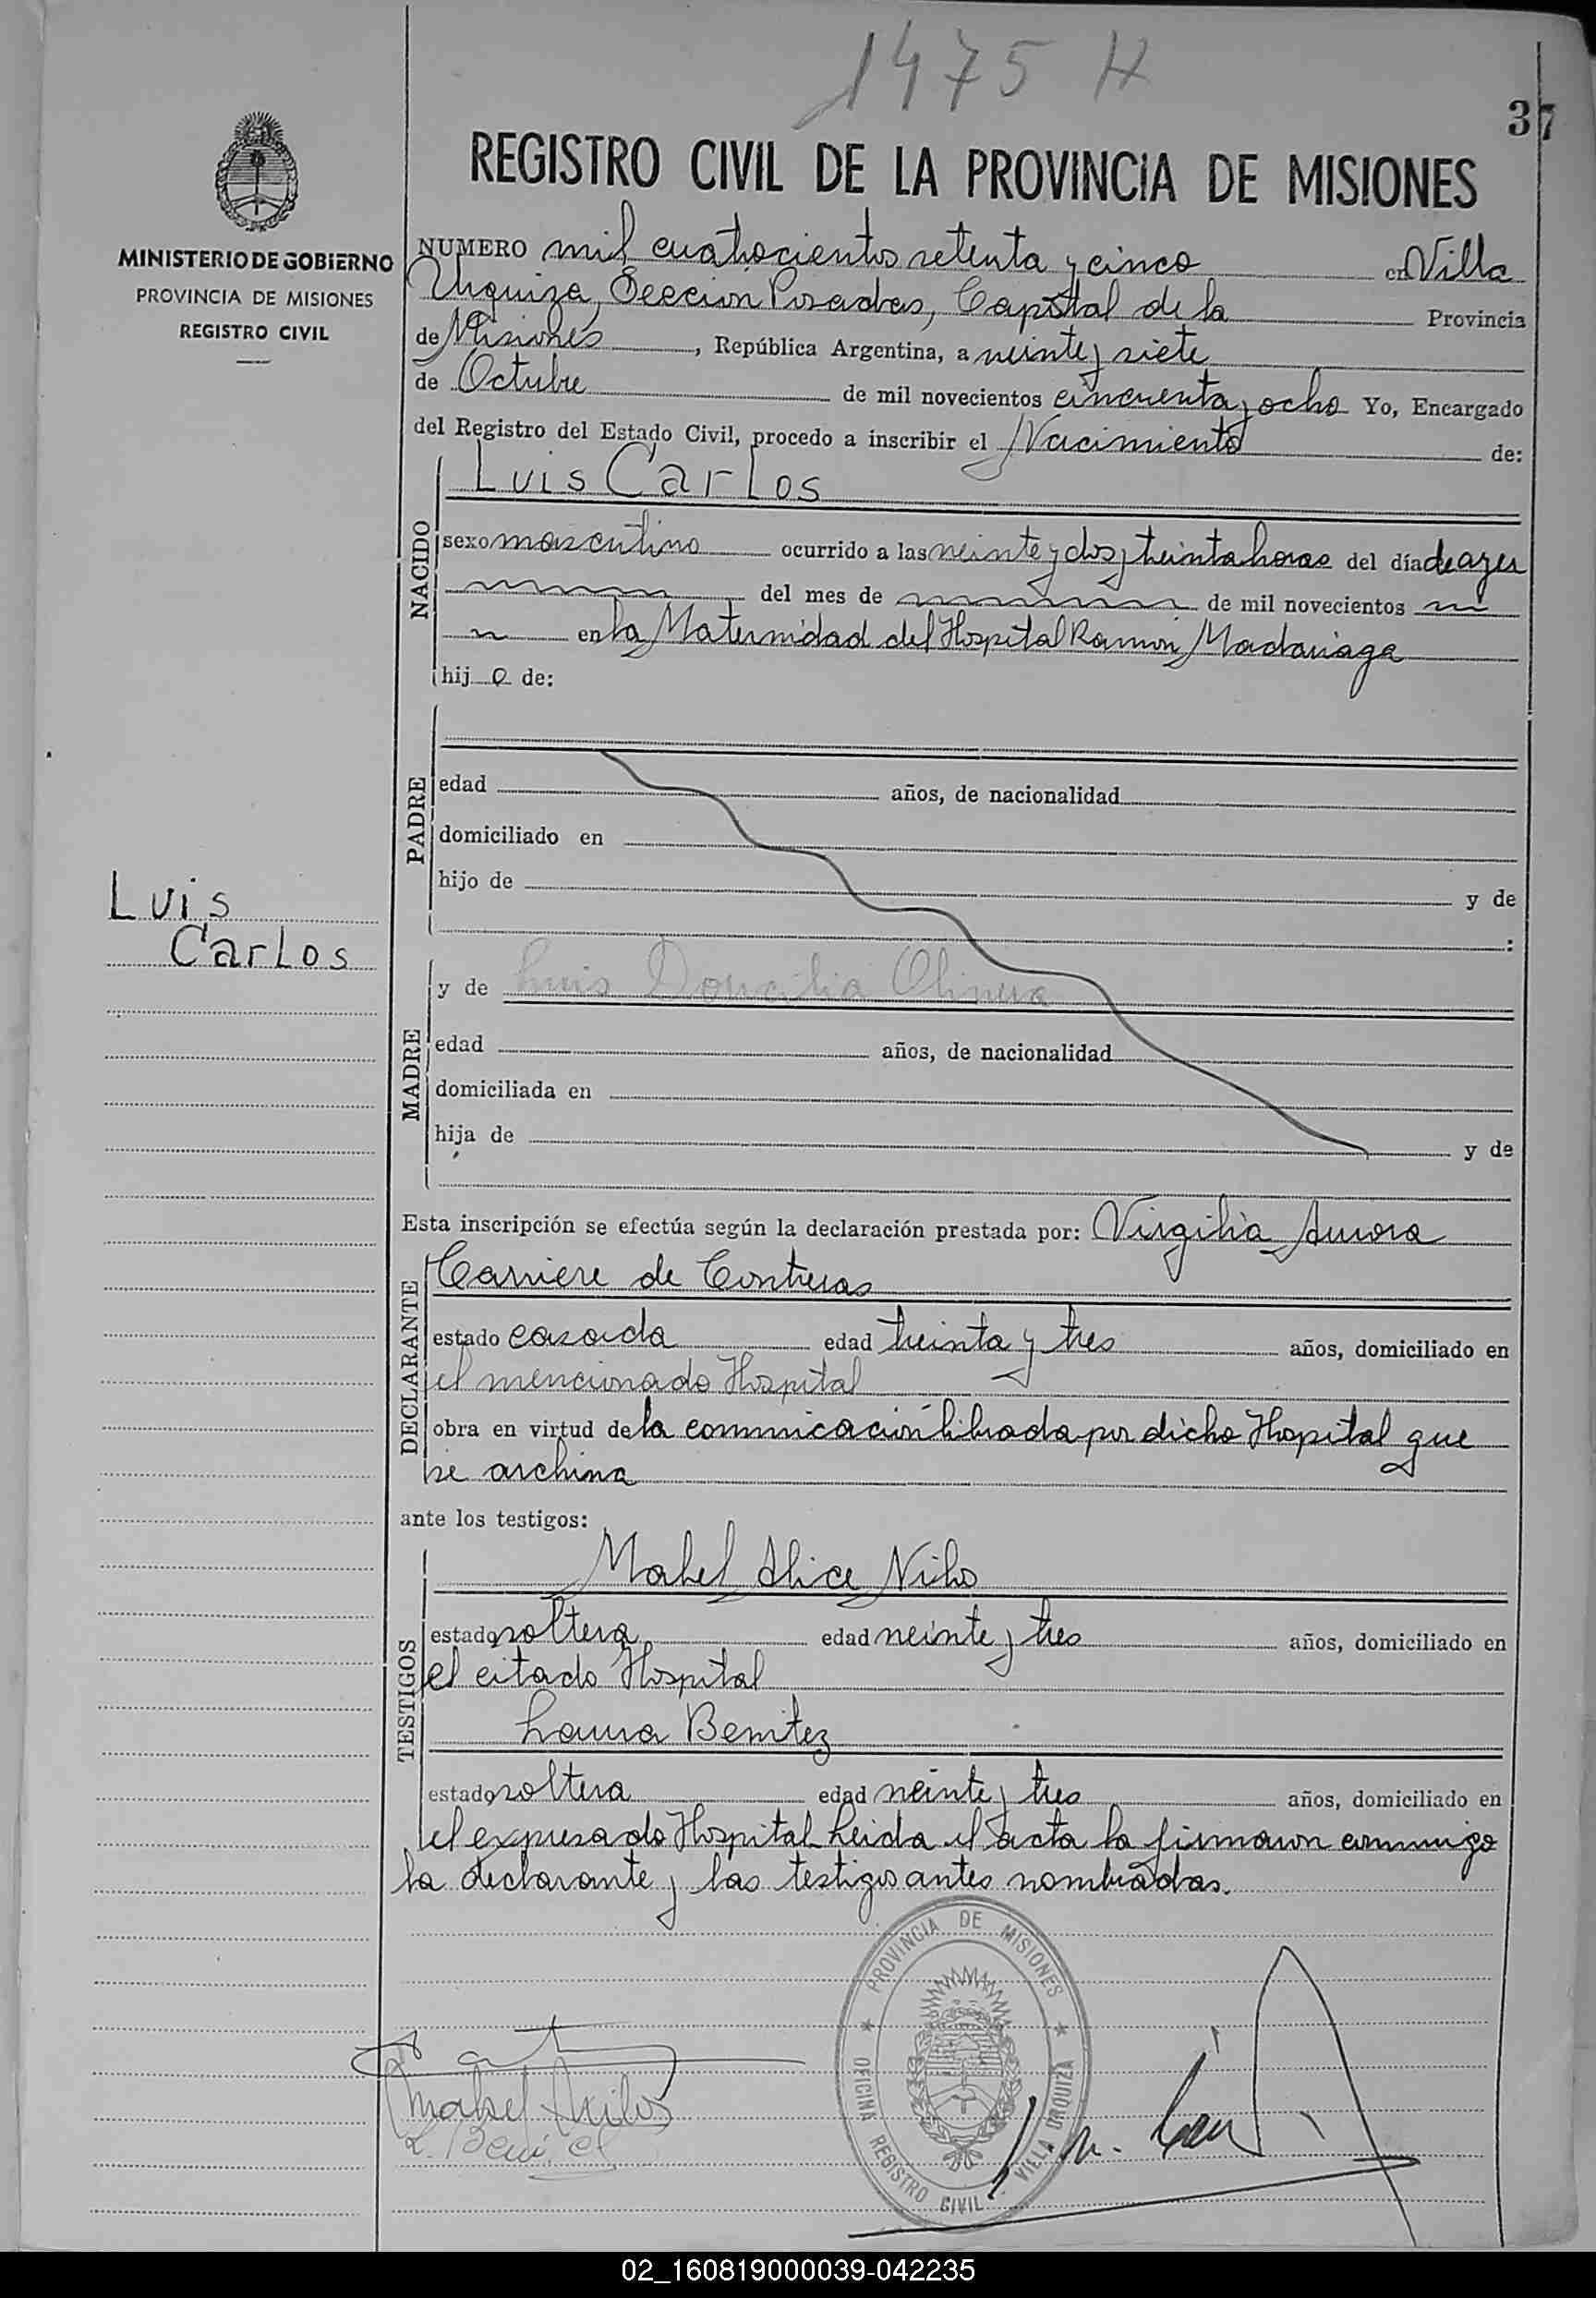 1475 H
37
REGISTRO CIVIL DE LA PROVINCIA DE MISIONES
MINISTERIO DE GOBIERNO
PROVINCIA DE MISIONES
REGISTRO CIVIL
NUMERO mil cuatrocientos setenta y cinco en Villa
Urquiza, Seccion Posadas, Capital de la Provincia
de Misiones, República Argentina, a veinte y siete
de Octubre de mil novecientos cincuenta y ocho Yo, Encargado
del Registro del Estado Civil, procedo a inscribir el Nacimiento de:
Luis Carlos
NACIDO
sexo masculino ocurrido a las veinte y dos y treinta horas del día de ayer
del mes de de mil novecientos
en la Maternidad del Hospital Ramón Madariaga
hijo de:
PADRE
edad años, de nacionalidad
domiciliado en
hijo de y de
:
Luis
Carlos
MADRE
y de Luis Olivera
edad años, de nacionalidad
domiciliada en
hija de y de
Esta inscripción se efectúa según la declaración prestada por: Virgilia Aurora
Carriere de Contreras
DECLARANTE
estado casada edad treinta y tres años, domiciliado en
el mencionado Hospital
obra en virtud de la comunicación librada por dicho Hospital que
se archiva
ante los testigos:
Mabel Alice Niho
TESTIGOS
estado soltera edad veinte y tres años, domiciliado en
el citado Hospital
Laura Benitez
estado soltera edad veinte y tres años, domiciliado en
el expresado Hospital Leida el acta la firmaron conmigo
la declarante y las testigos antes nombradas.
PROVINCIA DE MISIONES
OFICINA REGISTRO CIVIL - VILLA URQUIZA
Mabel
02_160819000039-042235